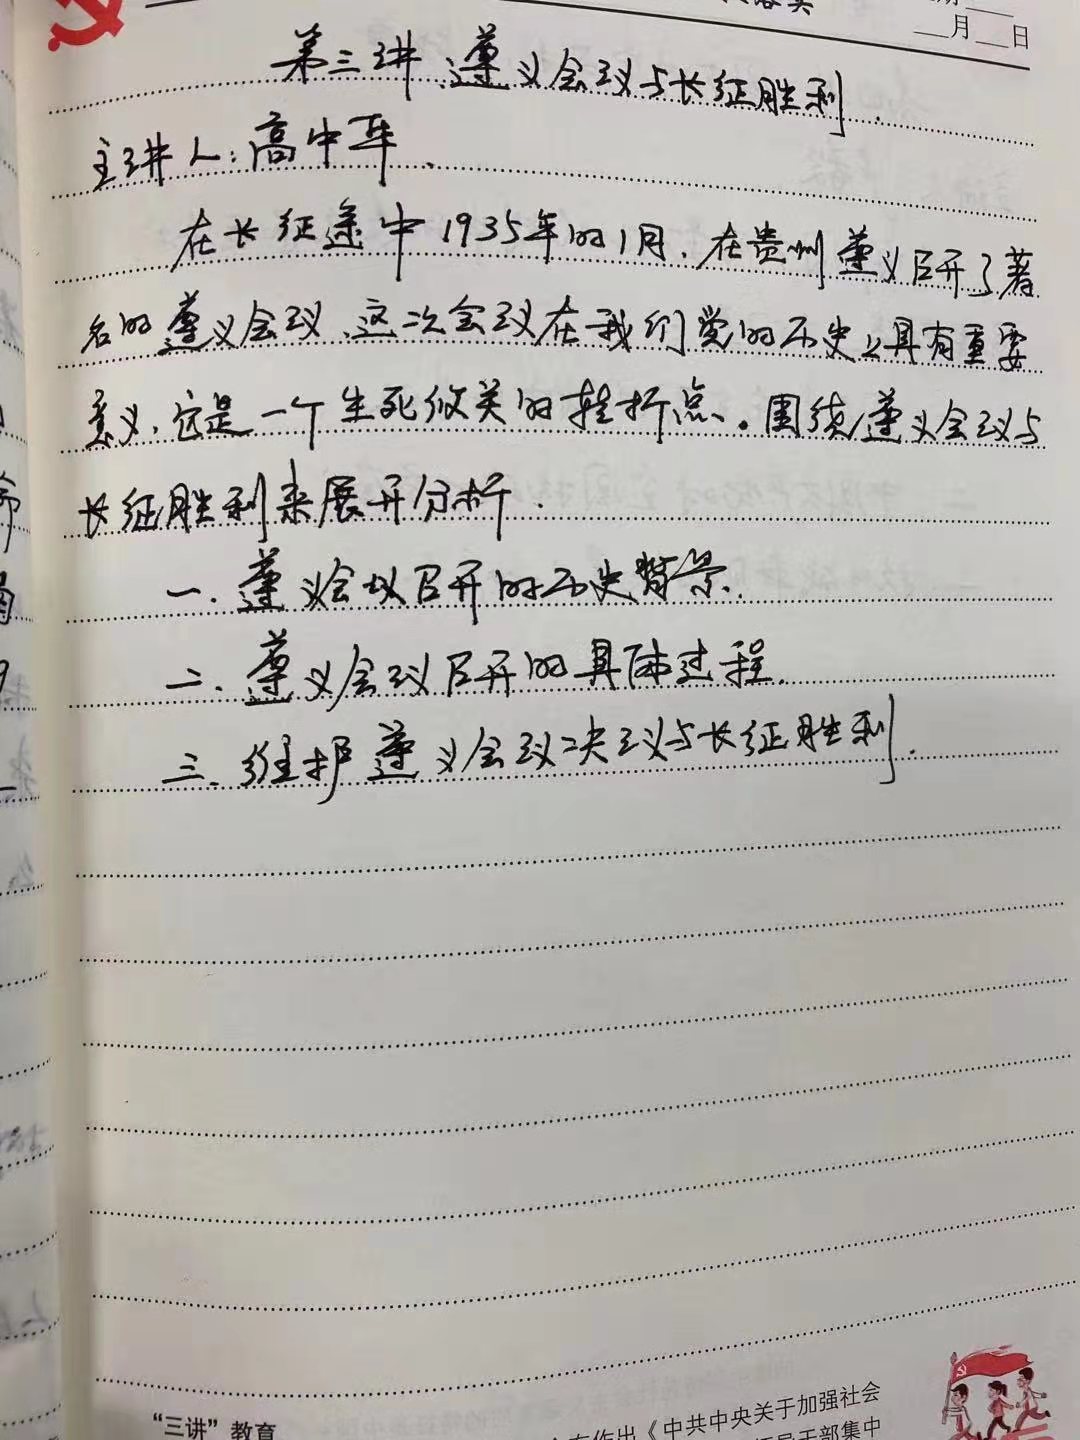 月 日
第三讲 遵义会议与长征胜利.
主讲人:高中华.
在长征途中1935年的1月.在贵州遵义召开了著
名的遵义会议.这次会议在我们党的历史上具有重要
意义.这是一个生死攸关的转折点.围绕遵义会议与
长征胜利来展开分析.
一.遵义会议召开的历史背景.
二.遵义会议召开的具体过程.
三.维护遵义会议决议与长征胜利.
“三讲”教育
作出《中共中央关于加强社会
干部集中